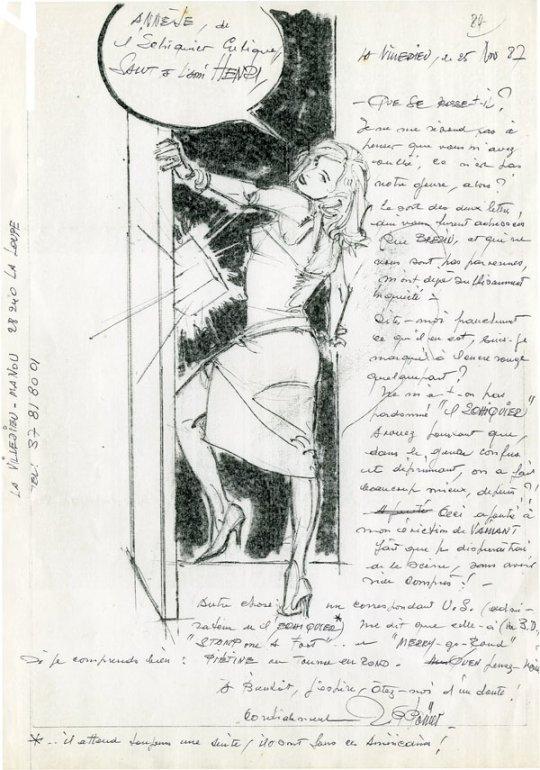 ANNÈSE, de
l'Echiquier Critique,
SALUT à l'ami HENRI,
LA VILLEDIEU, le 25 Nov 87
— QUE SE PASSE-T-IL?
Je me rends pas à
penser que vous m'avez
oublié, ce n'est pas
notre genre, alors?
Le sort des deux lettres
qui vous furent adressées
et que ne
vous sont pas parvenues,
m'ont déjà suffisamment
inquiété —
Dites-moi franchement
ce qu'il en est, suis-je
marqué à l'encre rouge
quelque part?
Ne m'a-t-on pas
pardonné "l'ECHIQUIER"
Avouez pourtant que,
dans le genre confus
et déprimant, on a fait
beaucoup mieux, depuis?!
Ceci ajouté à
mon éviction de VAILLANT
fait que je disparaîtrai
de la scène, sans avoir
rien compris! —
Autre chose: un correspondant U.S.
de l'ECHIQUIER*) me dit que celle-ci (la B.D.)
"STOMP one's Foot"... et "MERRY-go-Round"
Si je comprends bien: PIÉTINE ou TOURNE EN ROND.
A Bientôt, j'espère, ôtez-moi d'un doute!
Cordialement
*... il attend toujours une suite, ils sont fous ces américains!
LA VILLEDIEU - MANOU 28240 LA LOUPE
TEL: 37 81 80 01